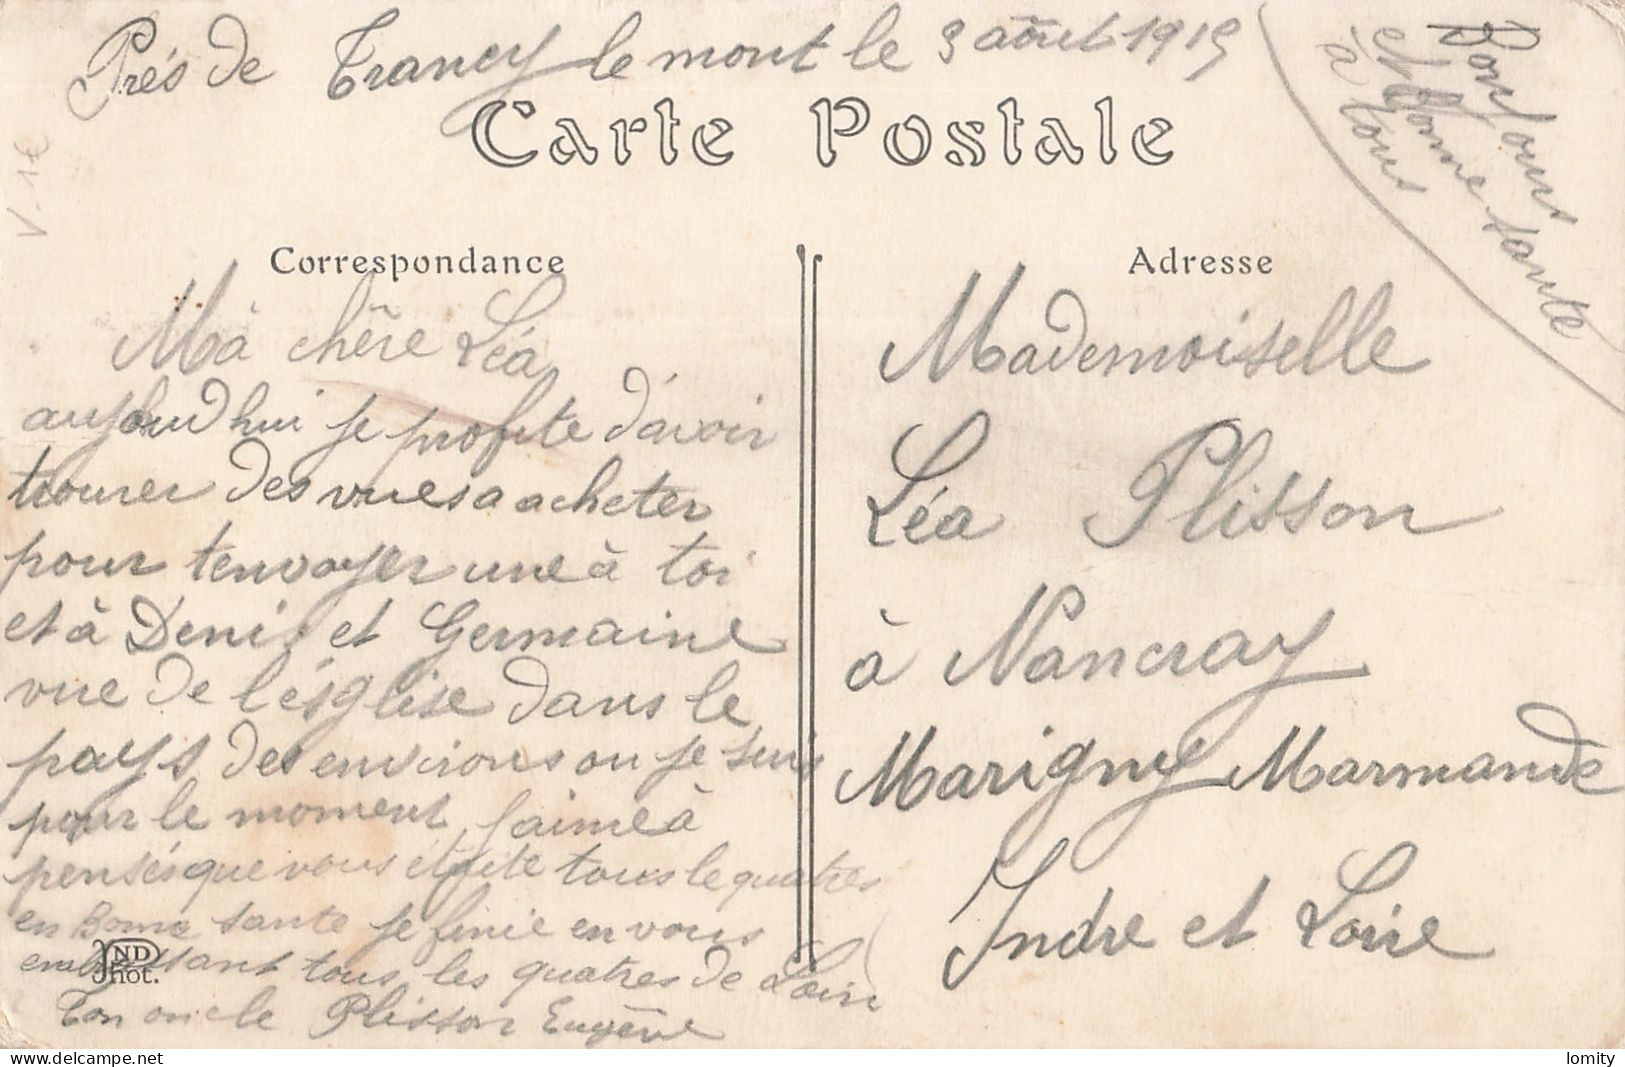 Prés de Trancy le mont le 9 août 1915
Bonjours
et bonne sante
à tous
Carte Postale
V. 1€
Correspondance
Mà chêre Léa
aujourdhui je profite d'avoir
trouver des vues a acheter
pour tenvoyer une à toi
et à Denis et Germaine
vue de l'ésglise dans le
pays des environs ou je suis
pour le moment, jaime à
pensés que vous ététe tous le quatres
en Bonne sante je finie en vous
embrassant tous les quatres de Loin
Ton oncle Plisson Eugêne
ND
Phot.
Adresse
Mademoiselle
Léa Plisson
à Nancray
Marigny Marmande
Indre et Loire
lomity